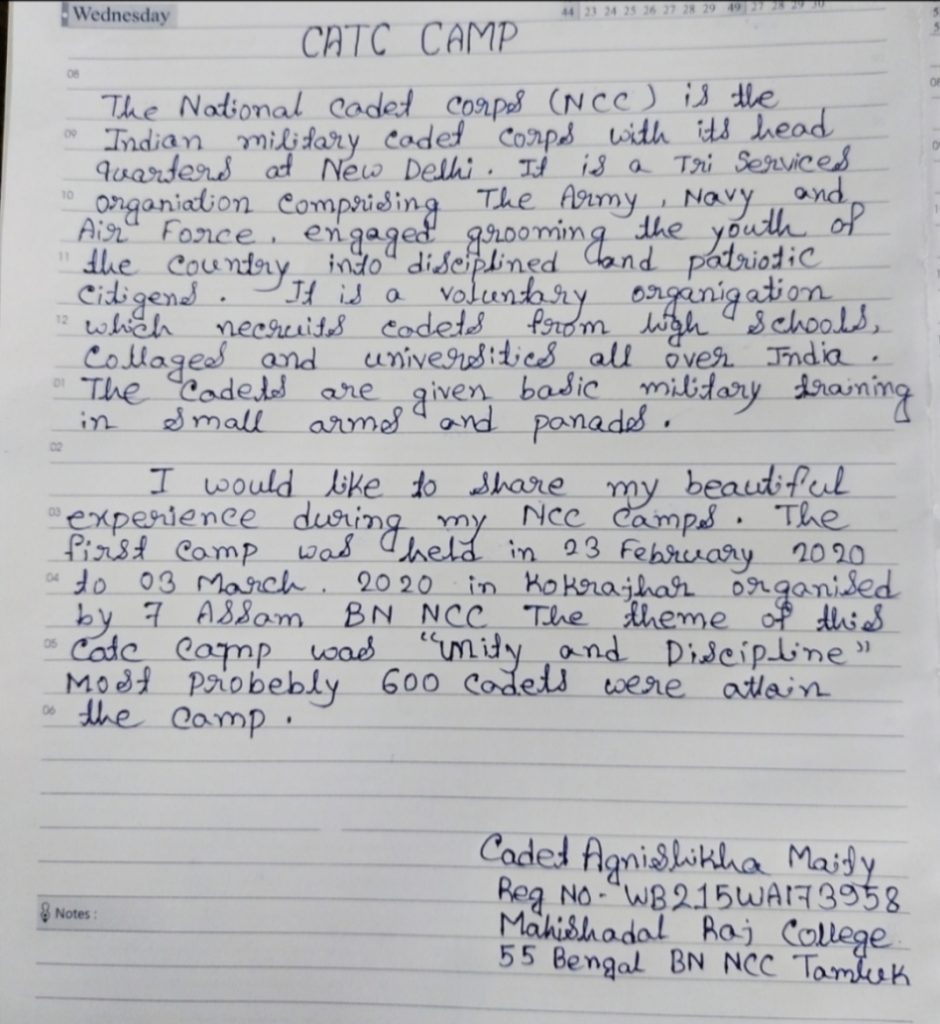 Wednesday
44 23 24 25 26 27 28 29 49 27 28 29 30
CATC CAMP
08
The National Cadet Corps (NCC) is the
09 Indian military cadet corps with its head
quarters at New Delhi. It is a Tri Services
10 organiation Comprising The Army, Navy and
Air Force, engaged grooming the youth of
11 the country into disciplined and patriotic
Citigens. It is a voluntary organigation
12 which necruits cadets from high schools,
Collages and universities all over India.
01 The Cadets are given basic military training
in small arms and panads.
02
I would like to share my beautiful
03 experience during my NCC Camps. The
first camp was held in 23 February 2020
04 to 03 March. 2020 in Kokrajhar organised
by 7 Assam BN NCC The theme of this
05 Catc Camp was "Unity and Discipline"
Most Probebly 600 Cadets were attain
06 the camp.
Cadet Agnishikha Maity
Reg NO- WB21SWA173958
Notes :
Mahishadal Raj College
55 Bengal BN NCC Tamluk